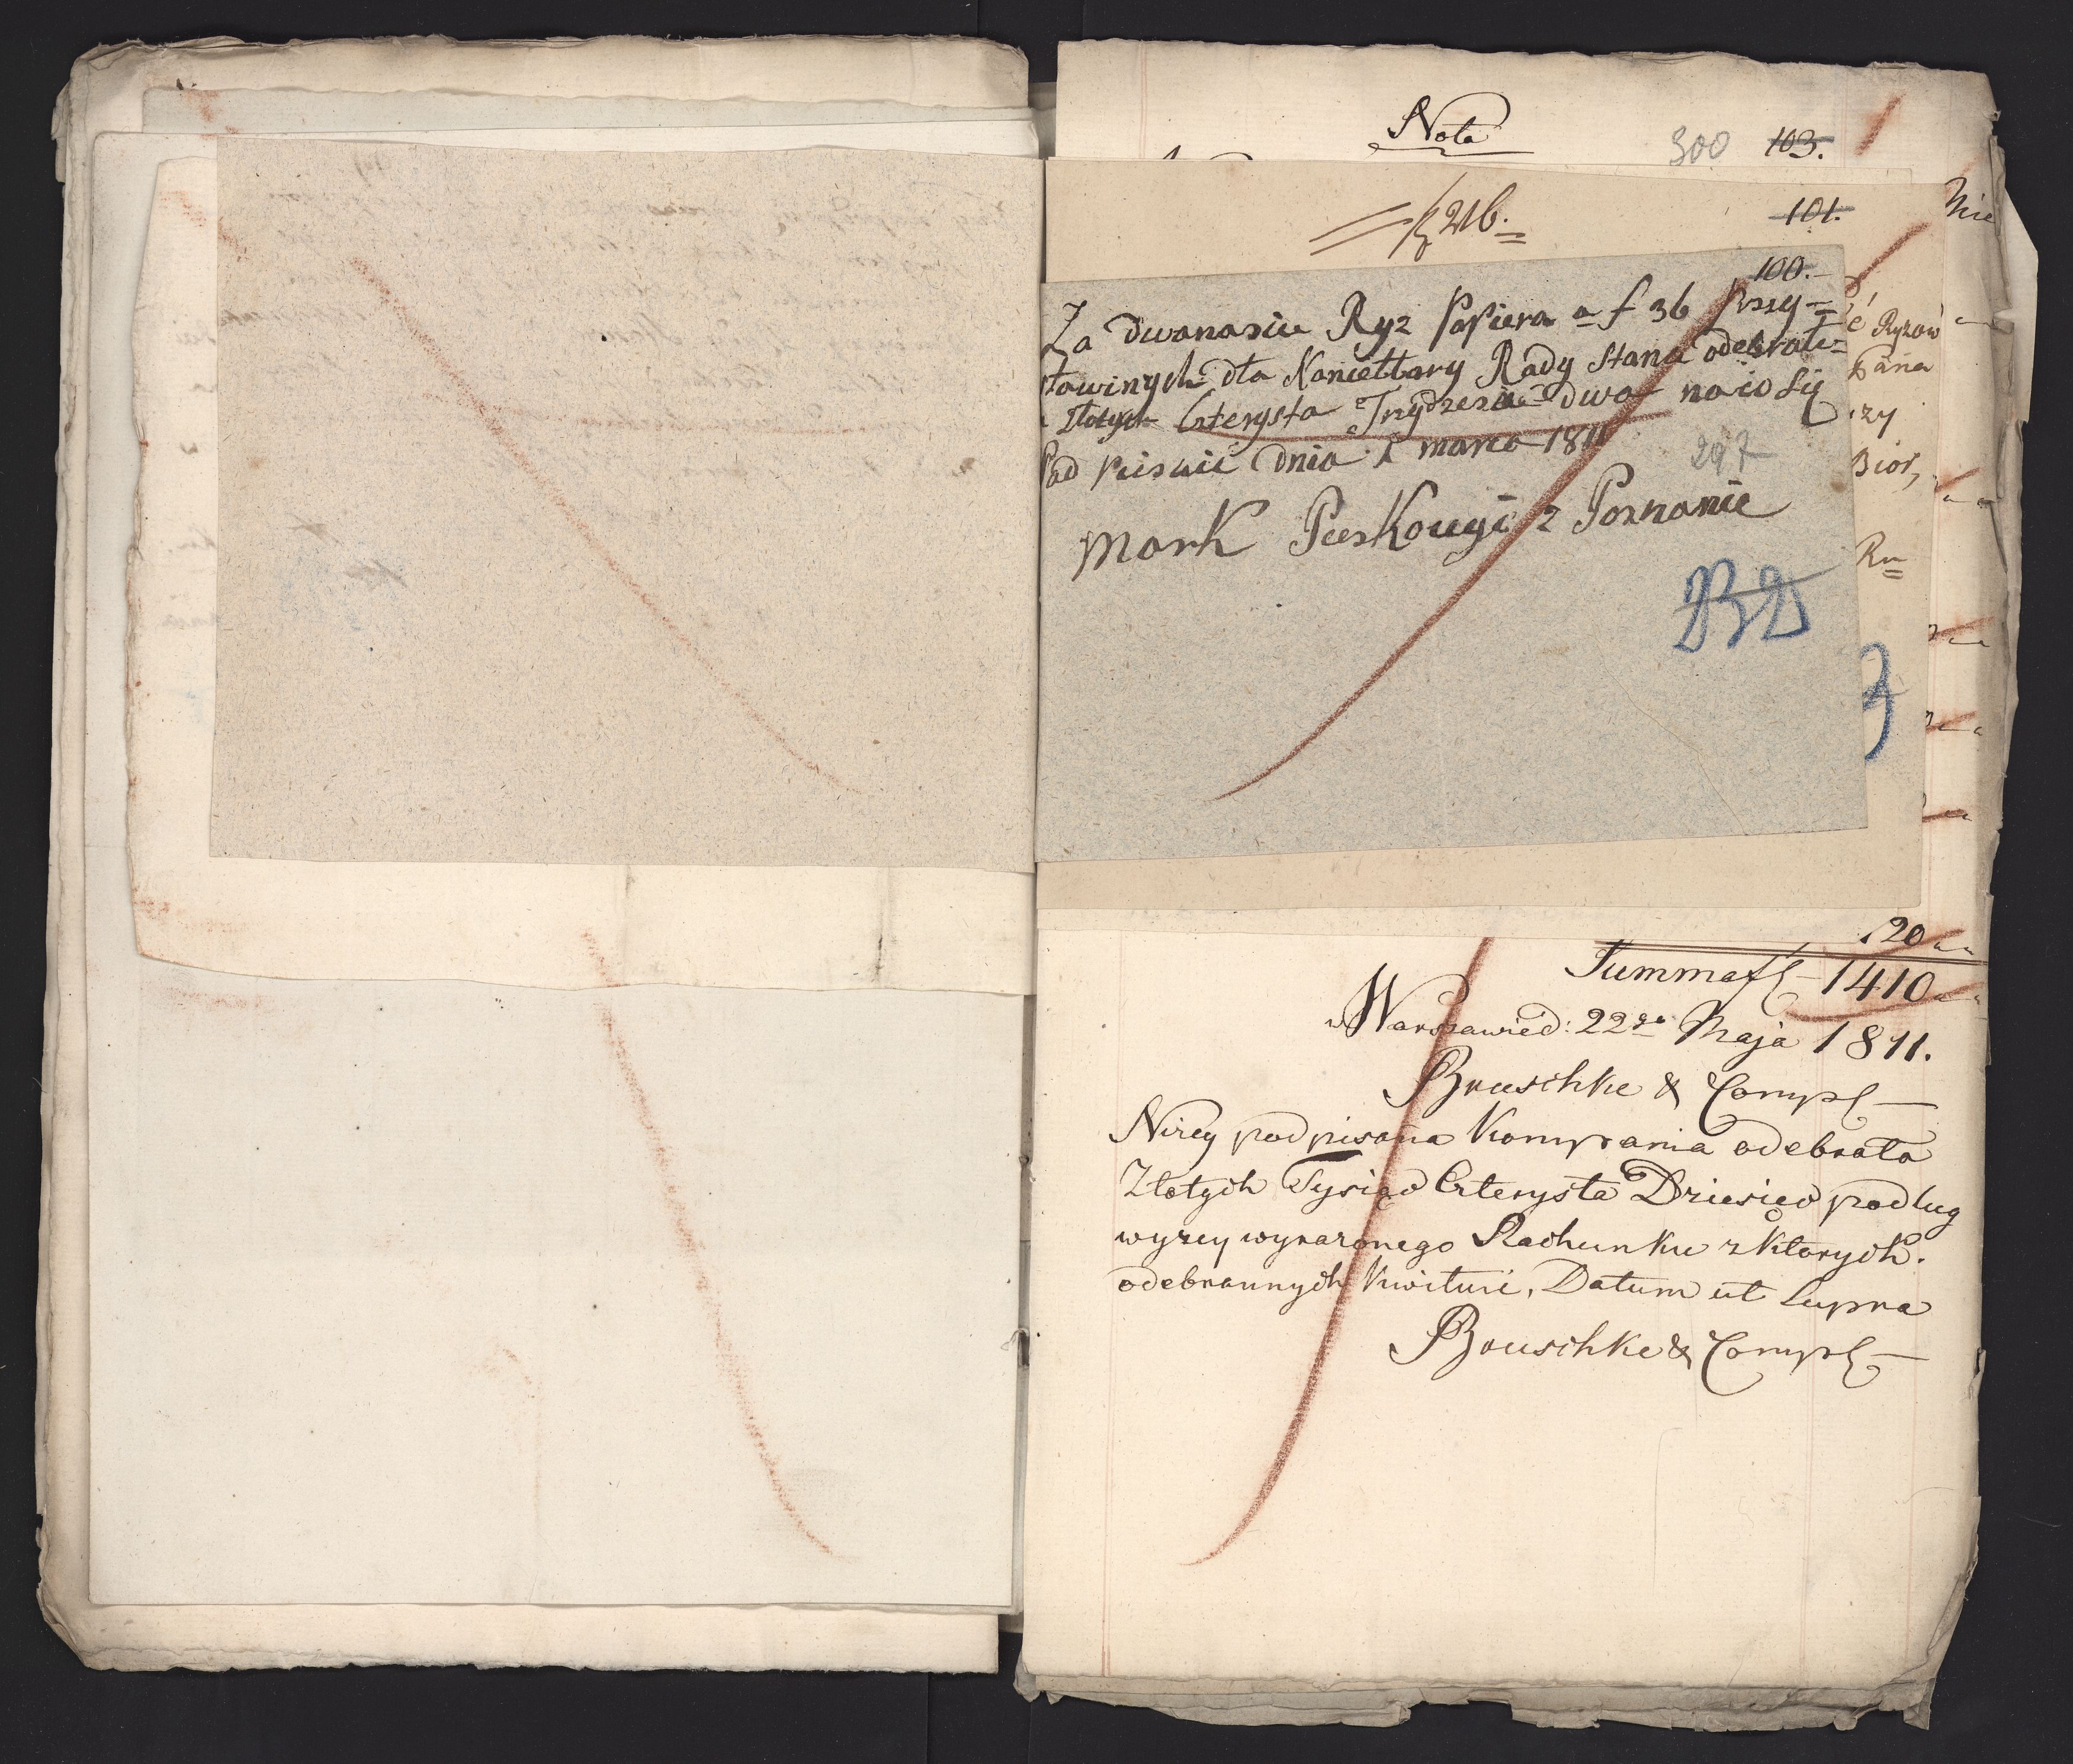 Nota
300 103.
216.
101.
Nie
100.
Za dwanascie Ryz Papieru a f 36 przy=
stawinych dla Kancellary Rady Stanu odebrałe=
Złotych Czterysta Trzydzescie dwa na co się
Pod Pisuie dnia 1 marca 1811
297
Mark Peskouyi z Poznanie
232
Ryzow
Pana
rzy
Bior,
Ru=
3
120
Summa fl 1410
w Warszawie d: 22go Maja 1811.
Bruschke & Comp
Nizey podpisana Kompania odebrała
Złotych Tysiąc Czterysta Dziesięć podług
wyzey wyrażonego Rachunku z ktorych
odebrannych kwituie, Datum ut Supra
Bruschke & Comp